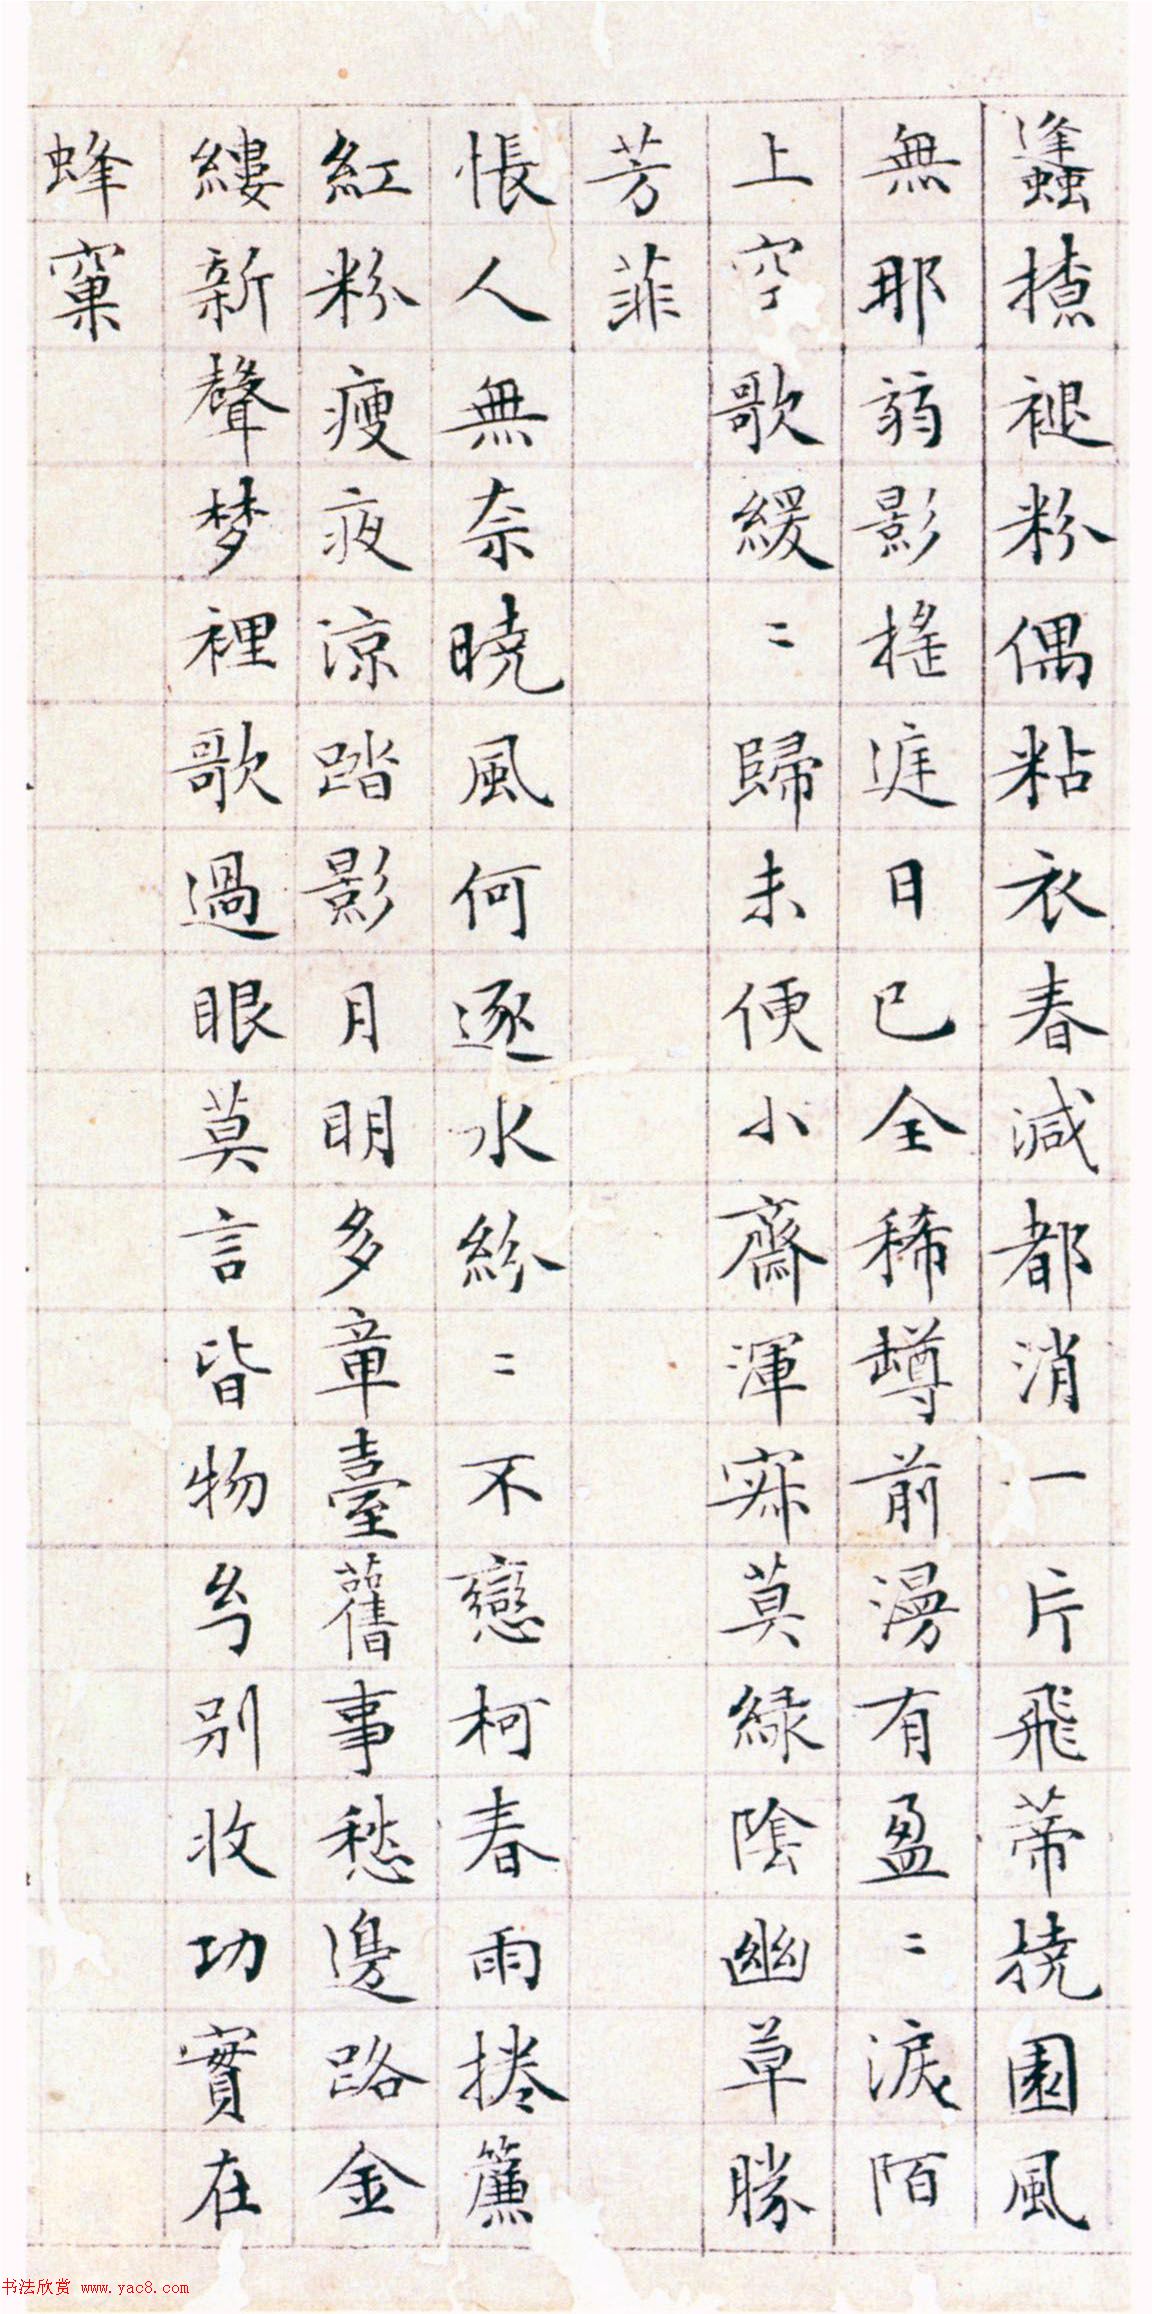 蠭揸褪粉偶粘衣春減都消一片飛蒂撓園風
無那弱影搖庭日已全稀罇前漫有盈〻淚陌
上空歌緩〻歸未便小齋渾寂莫綠陰幽草勝
芳菲
悵人無奈曉風何逐水紛〻不戀柯春雨捲簾
紅粉瘦夜涼踏影月明多章臺舊事愁邊路金
縷新聲梦裡歌過眼莫言皆物幻別收功實在
蜂窠
书法欣赏 www.yac8.com